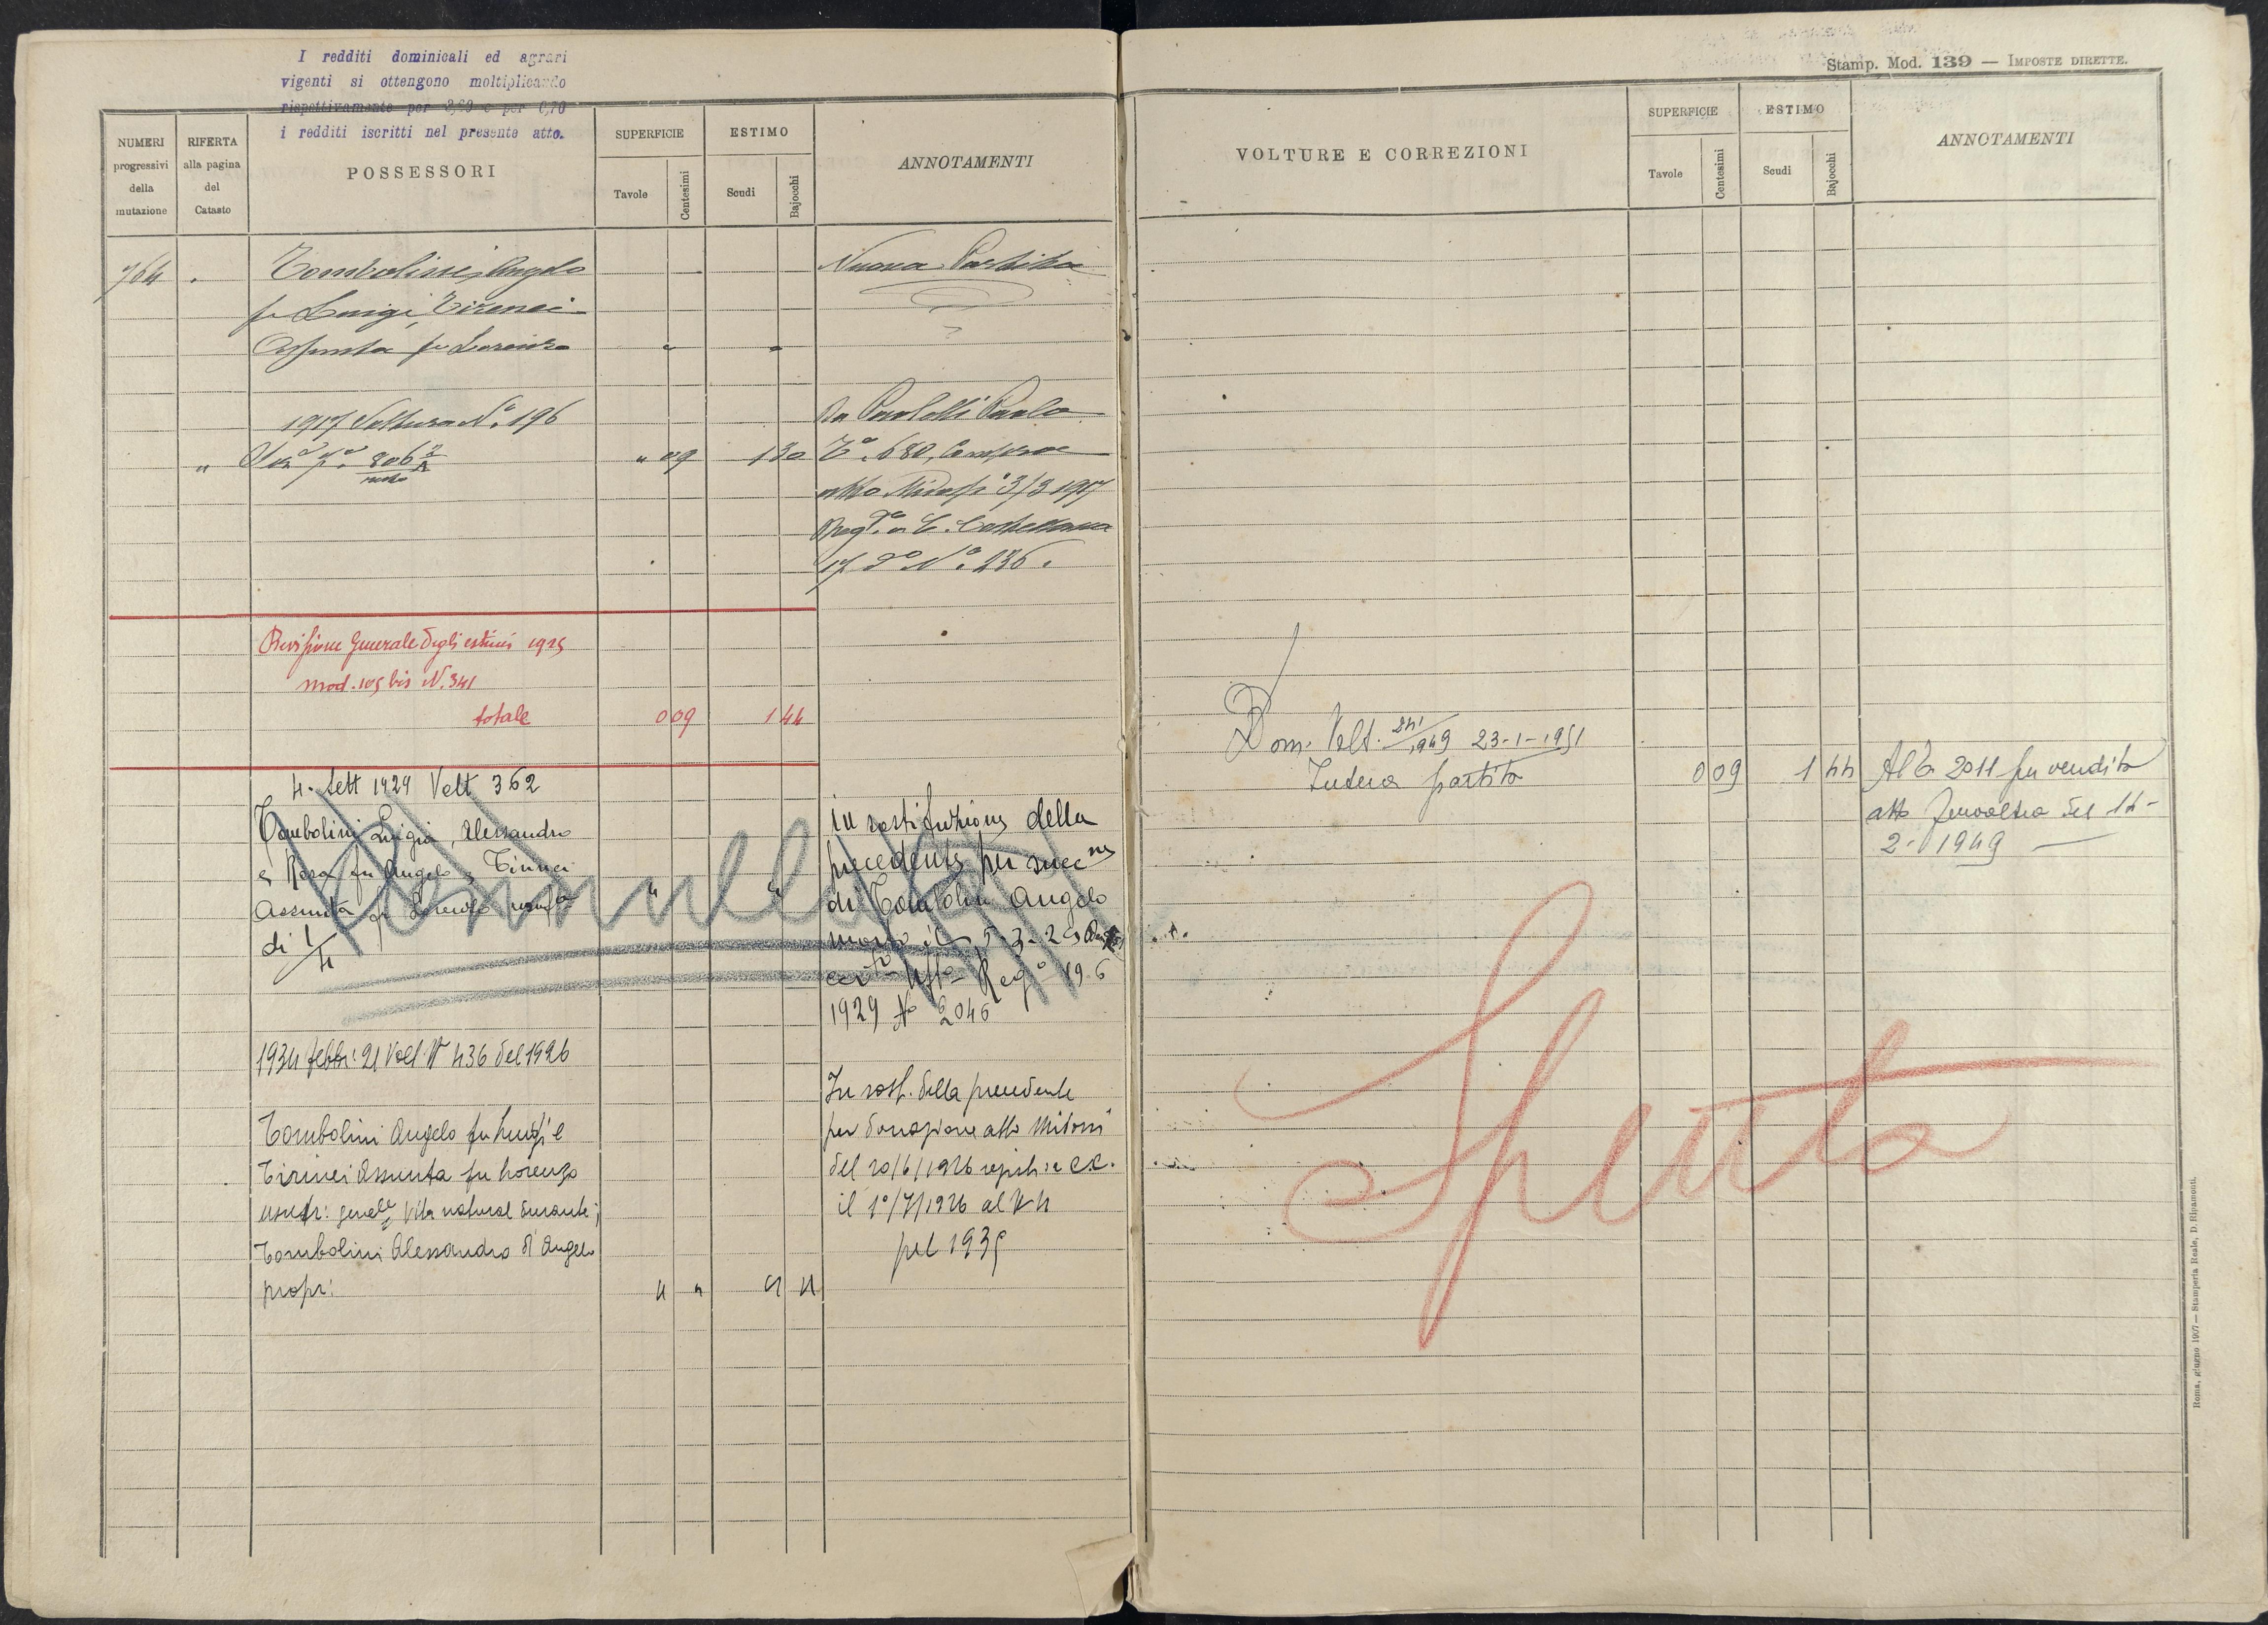 I redditi dominicali ed agrari
vigenti si ottengono moltiplicando
rispettivamente per e per 0,70
i redditi iscritti nel presente atto.
NUMERI
progressivi
della
mutazione
RIFERTA
alla pagina
del
Catasto
POSSESSORI
SUPERFICIE
Tavole
Centesimi
ESTIMO
Scudi
Bajocchi
ANNOTAMENTI
764 Tombolini Angelo
fu Luigi, Tirinei
Assunta fu Lorenzo
Nuova Partita
1917 Voltura N° 196
" 806 2/A " 09 1 30
Da Paolelli Paolo
T° 680, Compra
atto 3/3 1917
Reg. a C. Castellana
17 do N° 236.
Revisione Generale degli estimi 1925
mod. 105 bis N. 341
totale 0 09 1 44
4. Sett 1929 Volt 362
Tombolini Luigia, Alessandro
e Rosa fu Angelo e Tirinei
Assunta fu Lorenzo usuf
di 1/4
in sostituzione della
precedente per succ.ne
di Tombolini Angelo
morto il 5-3-29
Reg° 19-6
1929 N° 2046
Annullata
1934 febbr: 21 Volt. N° 436 del 1926
Tombolini Angelo fu Luigi e
Tirinei Assunta fu Lorenzo
usufr: gener.le vita natural durante;
Tombolini Alessandro d'Angelo
propr: " " " "
In sost. della precedente
per donazione atto Midossi
del 20/6/1926 C.C.
il 1°/7/1926 al N 4
pel 1935
Stamp. Mod. 139 — IMPOSTE DIRETTE.
VOLTURE E CORREZIONI
SUPERFICIE
Tavole
Centesimi
ESTIMO
Scudi
Bajocchi
ANNOTAMENTI
Dom. Volt. 241/1949 23-1-1951
Intera partita 0 09 1 44
Al T° 2011 per vendita
atto del 14-
2-1949
Spenta
Roma, giugno 1907 — Stamperia Reale, D. Ripamonti.